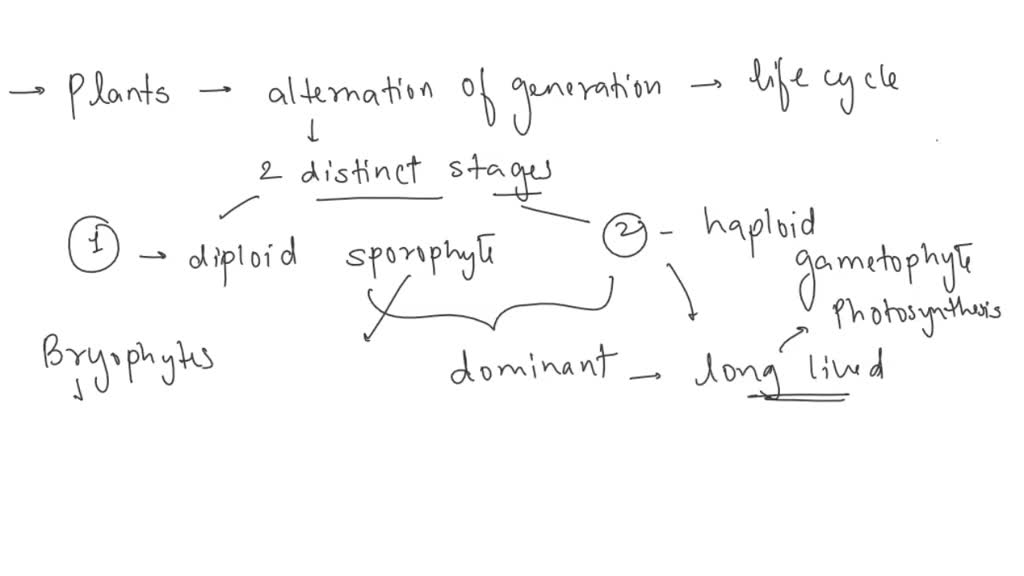 → Plants → alternation of generation → life cycle
↓
2 distinct stages
① → diploid sporophyte
② - haploid
gametophyte
Photosynthesis
Bryophytes
↓
dominant → long lived